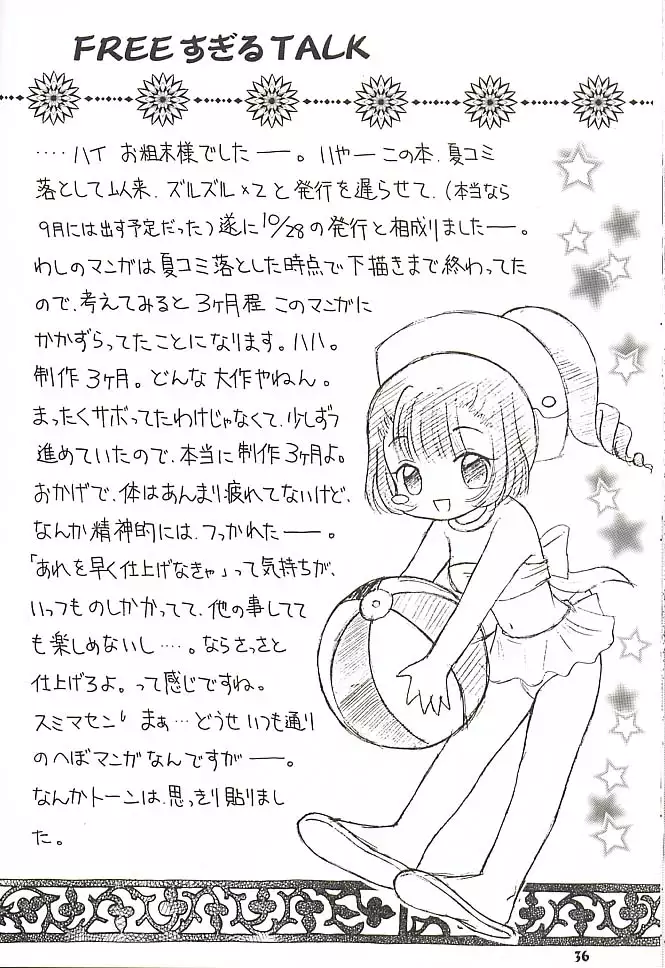 FREEすぎるTALK
‥‥ハイ お粗末様でしたー。いやーこの本、夏コミ
落として以来、ズルズル×2と発行を遅らせて、(本当なら
9月には出す予定だった)遂に10/28の発行と相成りましたー。
わしのマンガは夏コミ落とした時点で下描きまで終わってた
ので、考えてみると3ヶ月程このマンガに
かかずらってたことになります。ハハ。
制作3ヶ月。どんな大作やねん。
まったくサボってたわけじゃなくて、少しずつ
進めていたので、本当に制作3ヶ月よ。
おかげで、体はあんまり疲れてないけど、
なんか精神的には、つっかれたー。
「あれを早く仕上げなきゃ」って気持ちが、
いっつものしかかってて、他の事してて
も楽しめないし‥‥。ならさっさと
仕上げろよ。って感じですね。
スミマセン まぁ…どうせいつも通り
のへぼマンガなんですがー。
なんかトーンは、思っきり貼りまし
た。
36